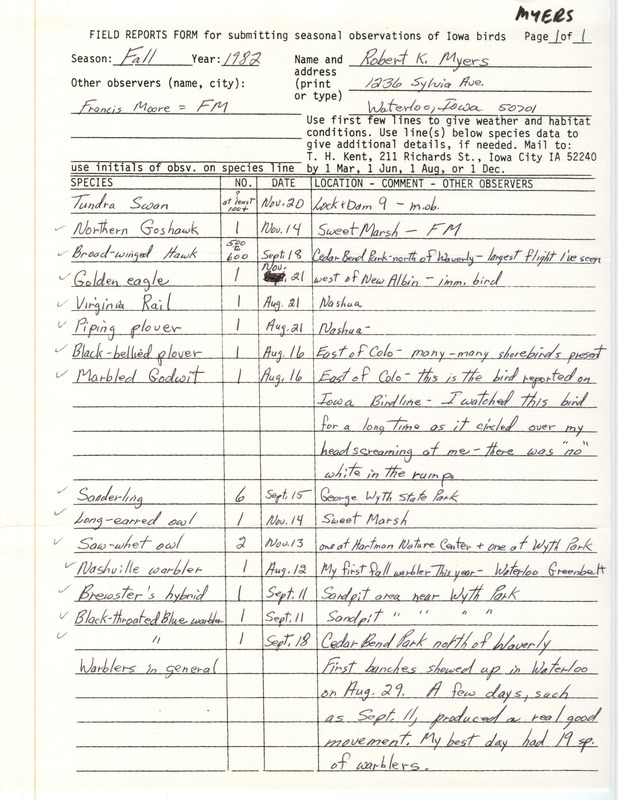 MYERS
FIELD REPORTS FORM for submitting seasonal observations of Iowa birds Page 1 of 1
Season: Fall Year: 1982 Name and address (print or type) Robert K. Myers
1236 Sylvia Ave.
Waterloo, Iowa 50701
Other observers (name, city):
Francis Moore = FM
Use first few lines to give weather and habitat
conditions. Use line(s) below species data to
give additional details, if needed. Mail to:
T. H. Kent, 211 Richards St., Iowa City IA 52240
use initials of obsv. on species line by 1 Mar, 1 Jun, 1 Aug, or 1 Dec.
SPECIES NO. DATE LOCATION - COMMENT - OTHER OBSERVERS
Tundra Swan ? at least 100+ Nov. 20 Lock & Dam 9 - m.ob.
✓ Northern Goshawk 1 Nov. 14 Sweet Marsh - FM
✓ Broad-winged Hawk 500 to 600 Sept. 18 Cedar Bend Park - north of Waverly - largest flight I've seen
✓ Golden eagle 1 Nov. 21 west of New Albin - imm. bird
✓ Virginia Rail 1 Aug. 21 Nashua
✓ Piping plover 1 Aug. 21 Nashua -
✓ Black-bellied plover 1 Aug. 16 East of Colo - many-many shorebirds present
✓ Marbled Godwit 1 Aug. 16 East of Colo - this is the bird reported on
Iowa Birdline - I watched this bird
for a long time as it circled over my
head screaming at me - there was "no"
white in the rump.
✓ Sanderling 6 Sept. 15 George Wyth State Park
✓ Long-earred owl 1 Nov. 14 Sweet Marsh
✓ Saw-whet owl 2 Nov. 13 one at Hartman Nature Center + one at Wyth Park
✓ Nashville warbler 1 Aug. 12 My first fall warbler This year - Waterloo Greenbelt
✓ Brewster's hybrid 1 Sept. 11 Sandpit area near Wyth Park
✓ Black-throated Blue warbler 1 Sept. 11 Sandpit " " " "
✓ " 1 Sept. 18 Cedar Bend Park north of Waverly
Warblers in general First bunches showed up in Waterloo
on Aug. 29. A few days, such
as Sept. 11, produced a real good
movement. My best day had 19 sp.
of warblers.